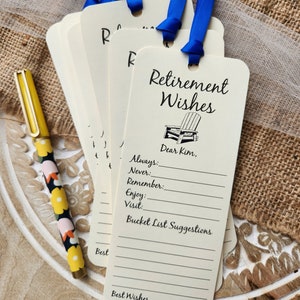 Retirement
Wishes
Dear Kim,
Always:
Never:
Remember:
Enjoy:
Visit:
Bucket List Suggestions
Best Wishes